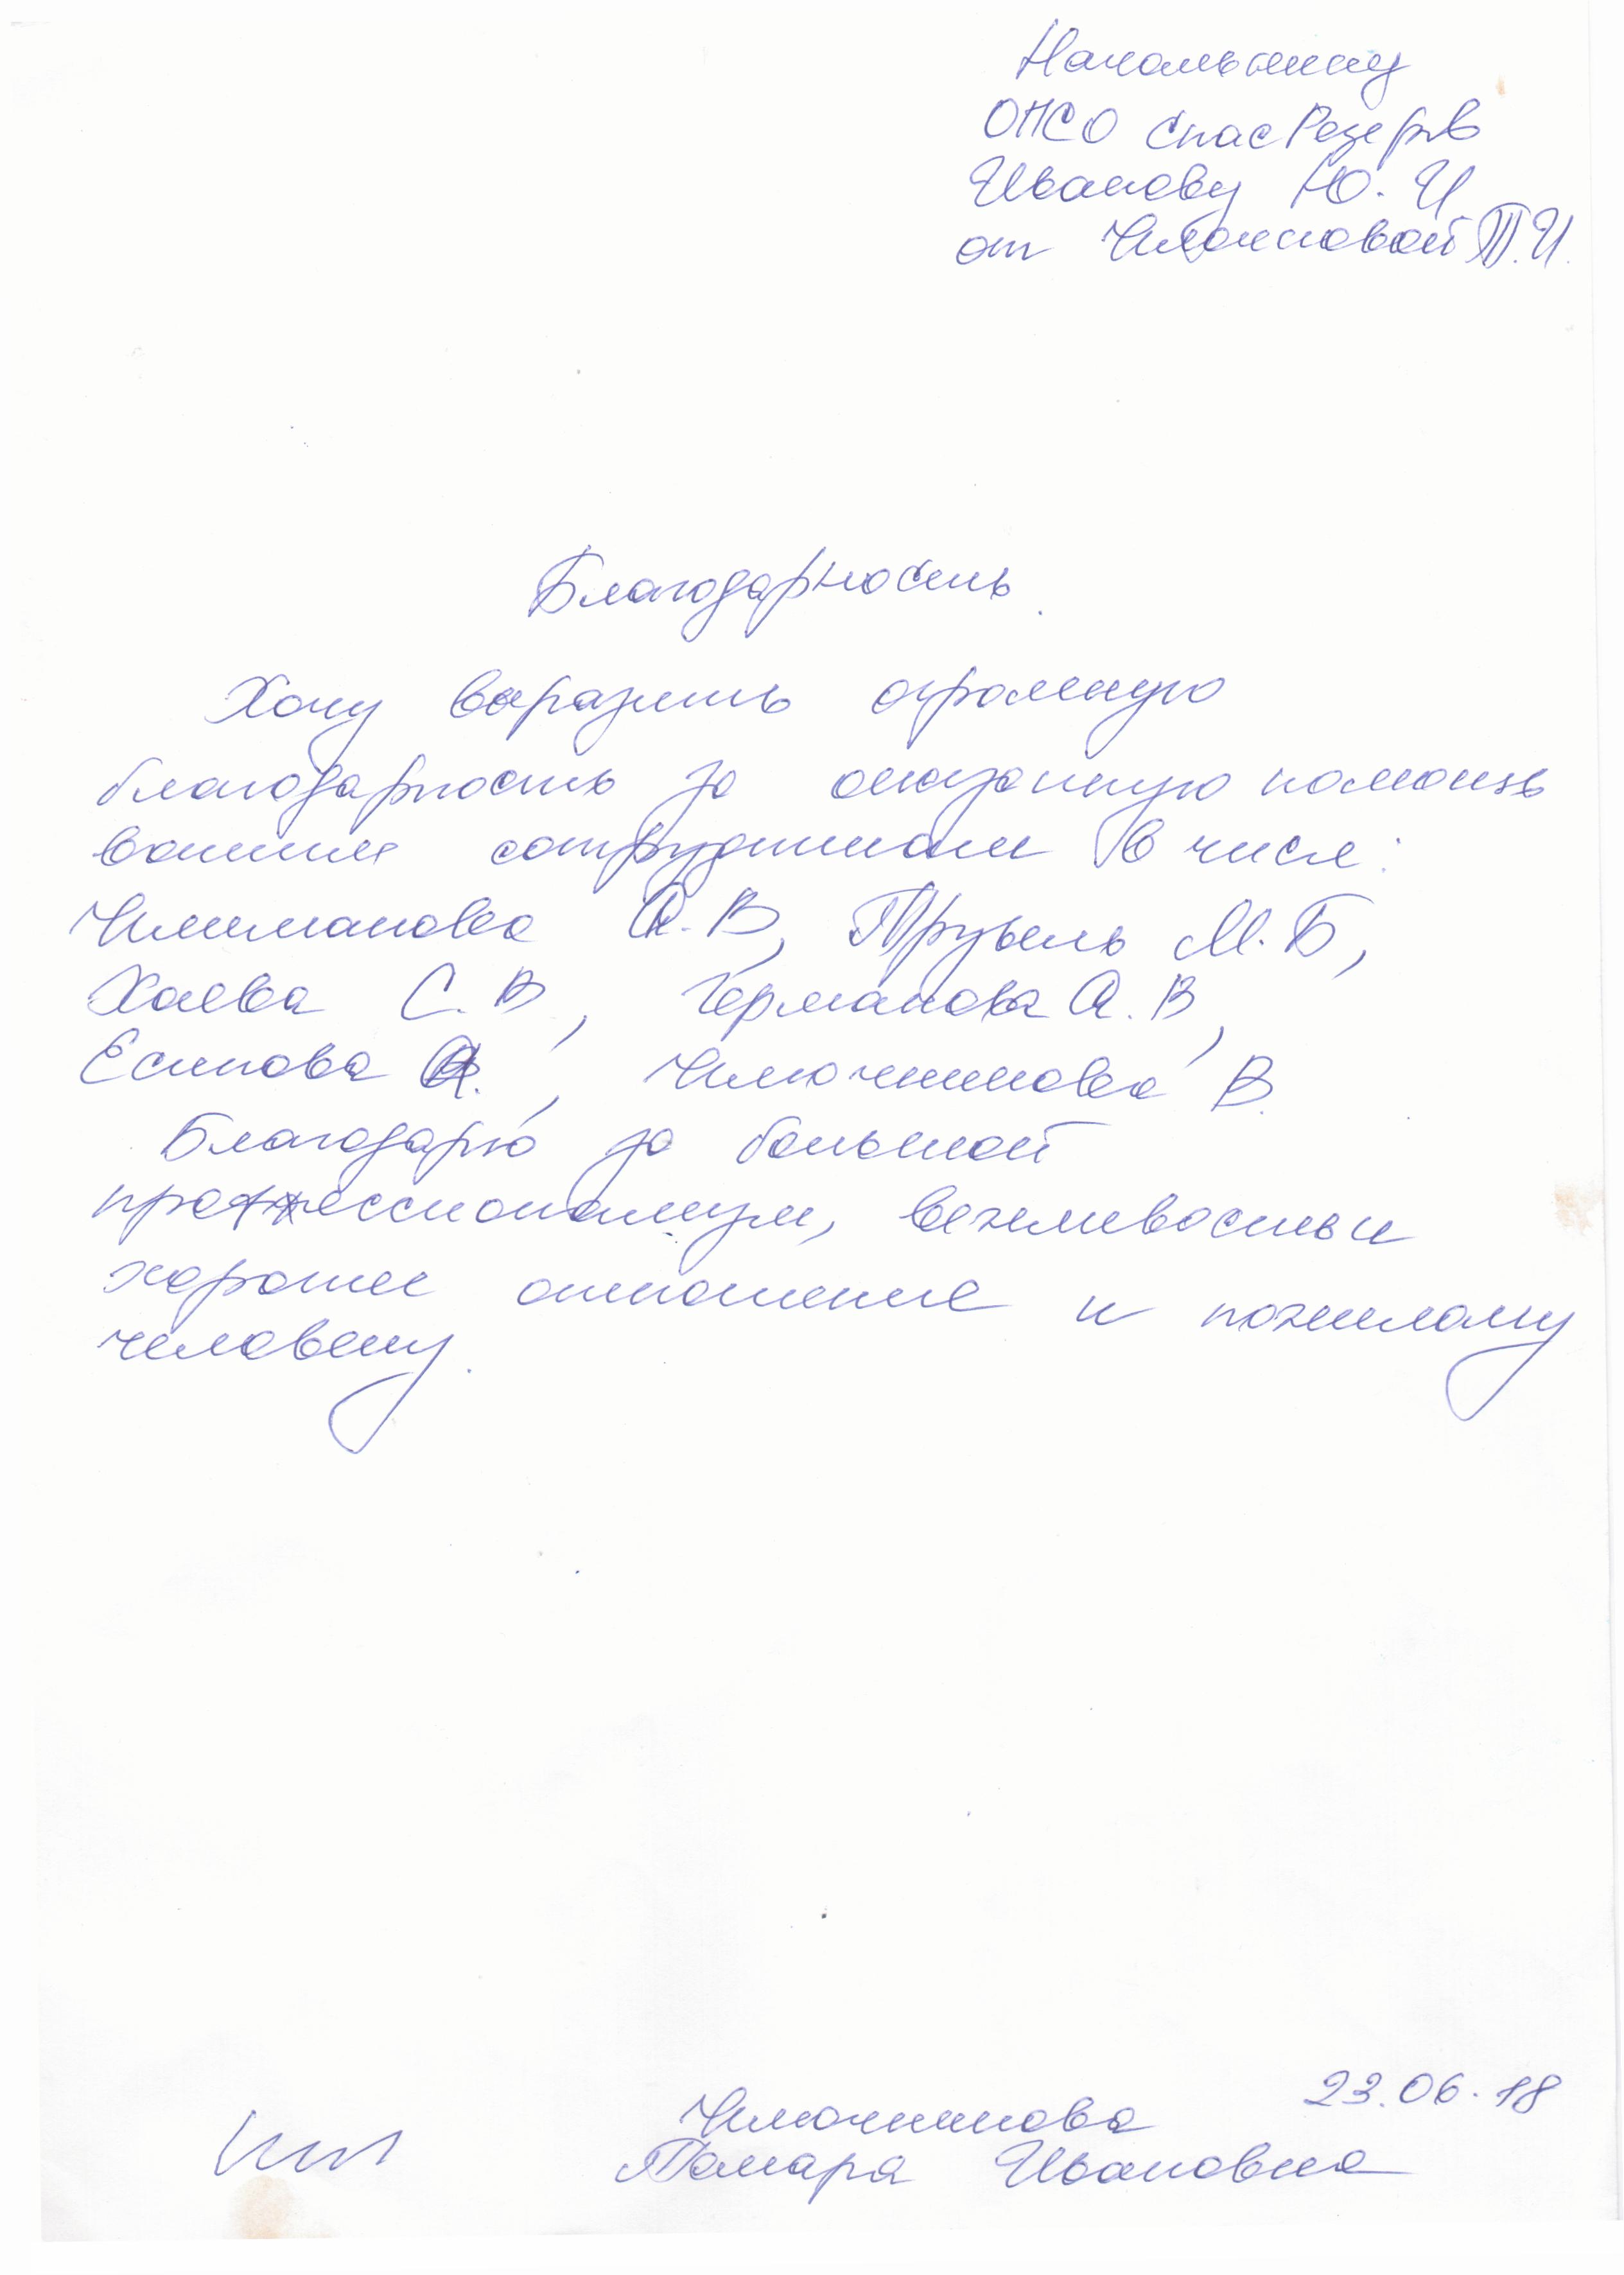 Начальнику
ОПСО СпасРезерв
Иванову Ю. И
от Т.И.
Благодарность.
Хочу выразить огромную
благодарность за оказанную помощь
вашим сотрудникам в числе:
А.В, М.Б,
С.В, Германова А.В,
Есипова А., В.
Благодарю за большой
профессионализм, вежливость и
хорошее отношение к пожилому
человеку.
23.06.18
Тамара Ивановна